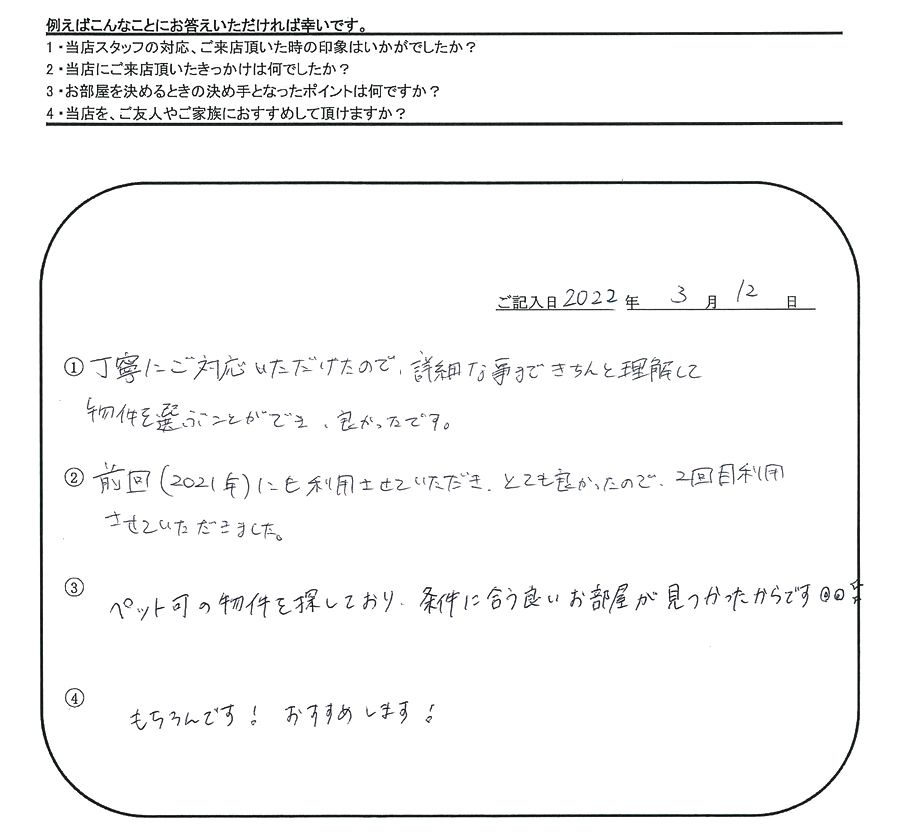 例えばこんなことにお答えいただければ幸いです。
1・当店スタッフの対応、ご来店頂いた時の印象はいかがでしたか?
2・当店にご来店頂いたきっかけは何でしたか?
3・お部屋を決めるときの決め手となったポイントは何ですか?
4・当店を、ご友人やご家族におすすめして頂けますか?
ご記入日 2022 年 3 月 12 日
① 丁寧にご対応いただけたので、詳細な事まできちんと理解して
物件を選ぶことができ、良かったです。
② 前回(2021年)にも利用させていただき、とても良かったので、2回目利用
させていただきました。
③ ペット可の物件を探しており、条件に合う良いお部屋が見つかったからです
④ もちろんです! おすすめします!